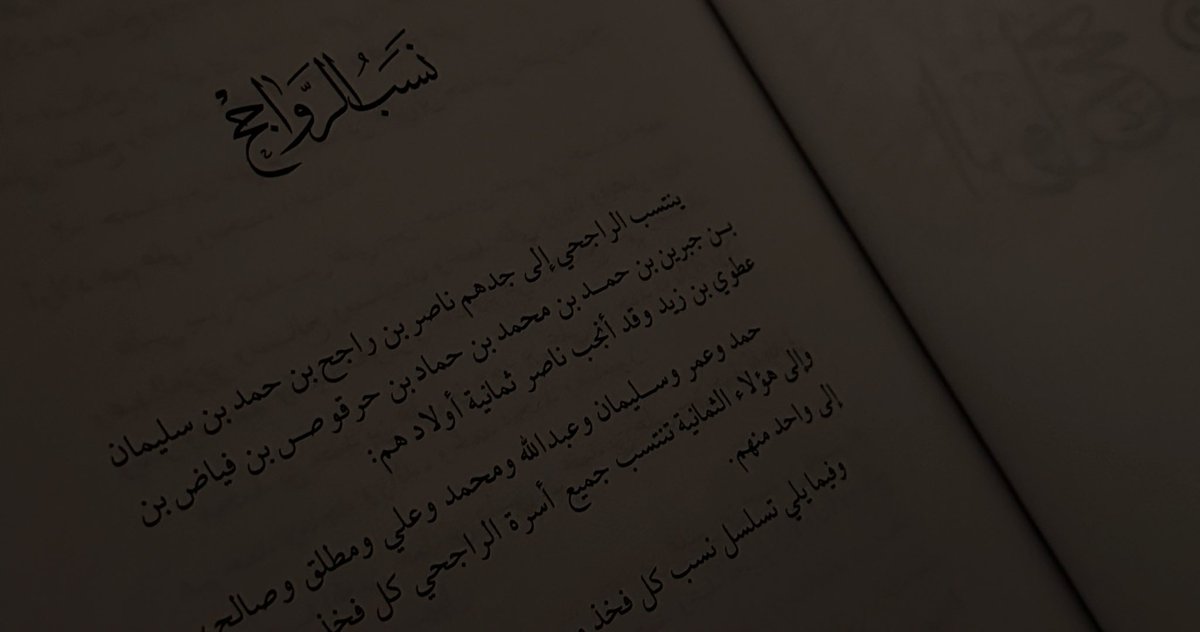 نَسَبُ الرَّوَاجِحْ
ينتسب الراجحي إلى جدهم ناصر بن راجح بن حمد بن سليمان
بـن جبرين بن حمـد بن محمد بن حماد بن حرقوص بن فياض بن
عطوي بن زيد وقد أنجب ناصر ثمانية أولاد هم:
حمد وعمر وسليمان وعبدالله ومحمد وعلي ومطلق وصالح
وإلى هؤلاء الثمانية تنتسب جميع أسرة الراجحي كل فخذ
إلى واحد منهم.
وفيما يلي تسلسل نسب كل فخذ